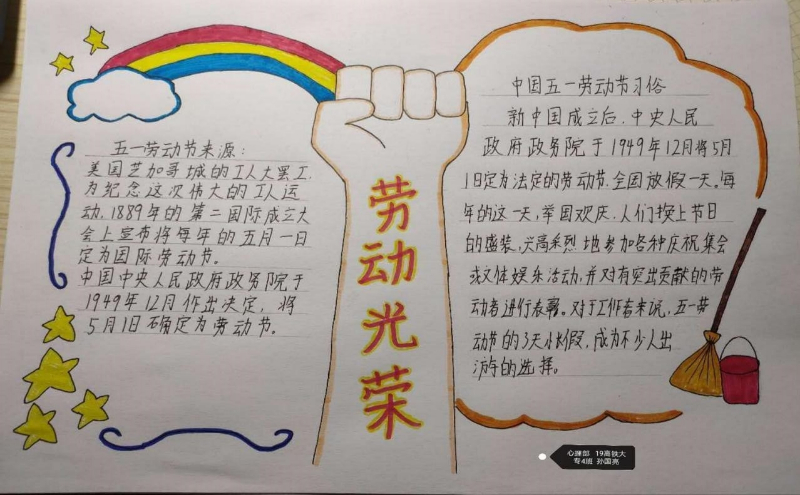 五一劳动节来源:
美国芝加哥城的工人大罢工,
为纪念这次伟大的工人运
动,1889年的第二国际成立大
会上宣布将每年的五月一日
定为国际劳动节。
中国中央人民政府政务院于
1949年12月作出决定,将
5月1日确定为劳动节。
劳动光荣
中国五一劳动节习俗
新中国成立后,中央人民
政府政务院于1949年12月将5月
1日定为法定的劳动节,全国放假一天。每
年的这一天,举国欢庆,人们换上节日
的盛装,兴高采烈地参加各种庆祝集会
或文体娱乐活动,并对有突出贡献的劳
动者进行表彰。对于工作者来说,五一劳
动节的3天休假,成为不少人出
游的选择。
心渊部 19高铁大
专4班 孙国亮